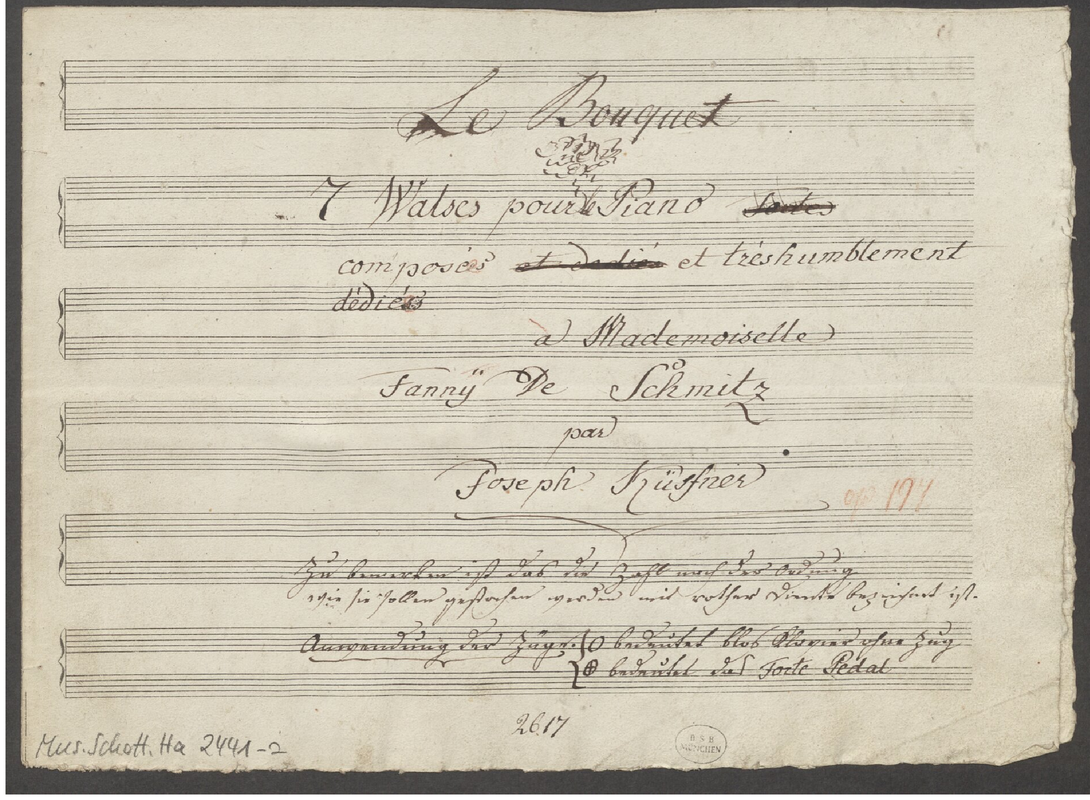 Le Bouquet
7 Walses pour le Piano fortes
composés et dediés et tréshumblement
dédiées
à Mademoiselle
Fannÿ De Schmitz
par
Joseph Küffner
op 197
Zu bemerken ist das die Zahl nach der Ordnung
wie sie sollen gestochen werden mit rother Diente bezeichnet ist.
Anwendung der Züge. O bedeutet blos Klavier ohne Zug
⊕ bedeutet das Forte Pedal
2617
Mus.Schott.Ha 2441-2
B S B
MÜNCHEN